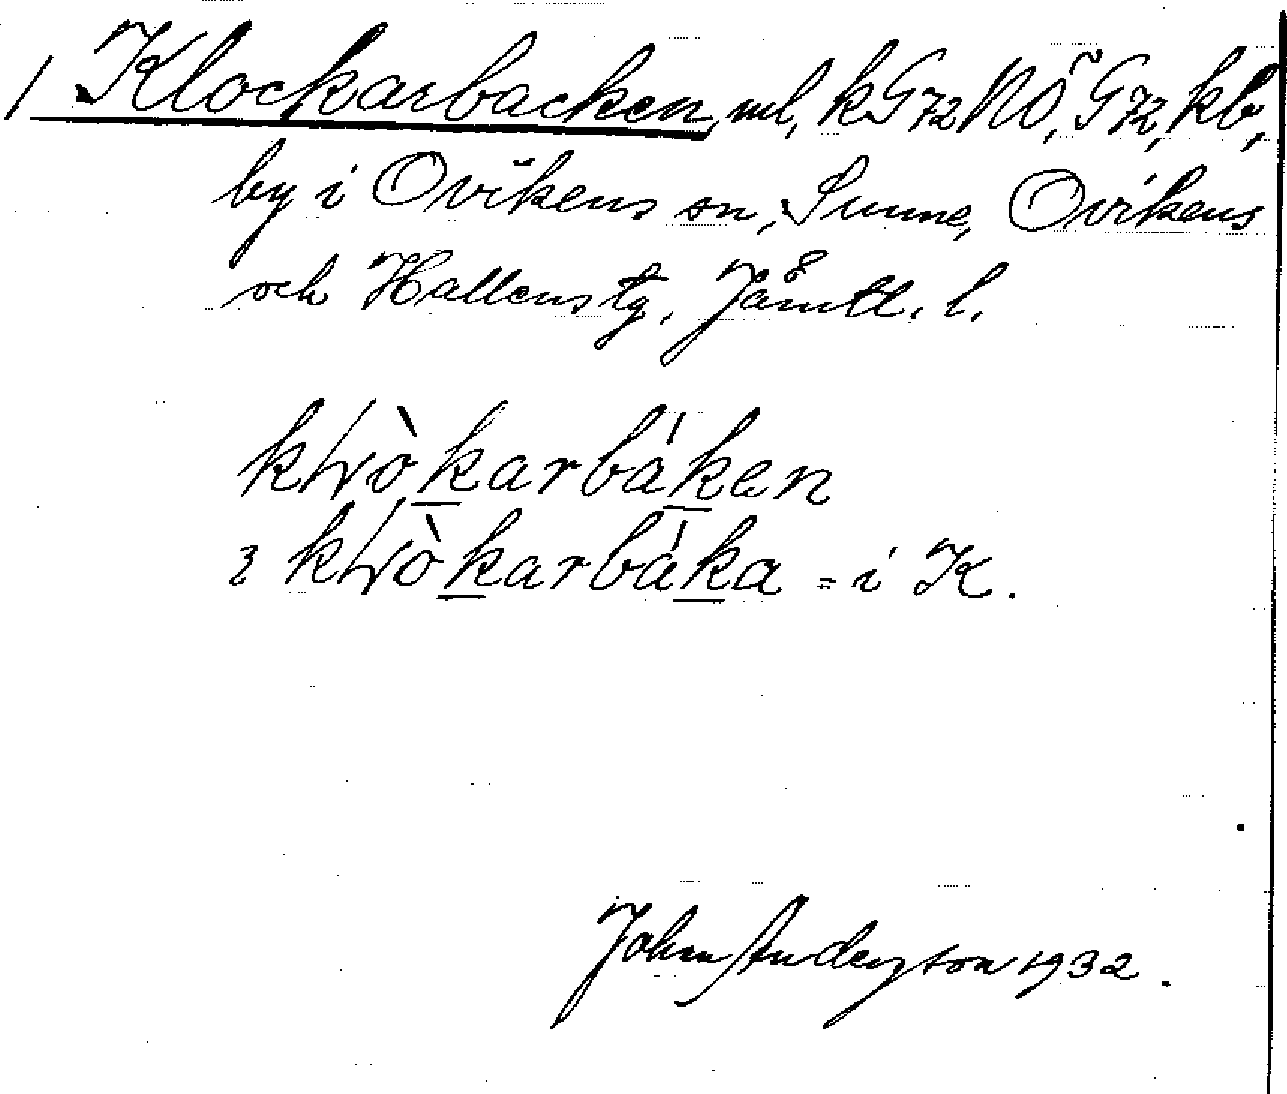 1 Klockarbacken, ml, kG72NÖ, G72, kb,
by i Ovikens sn, Sunne, Ovikens
och Hallens tg, Jämtl. l.
kɫòkarbáken
i kɫòkarbáka = i K.
John Anderzson 1932.